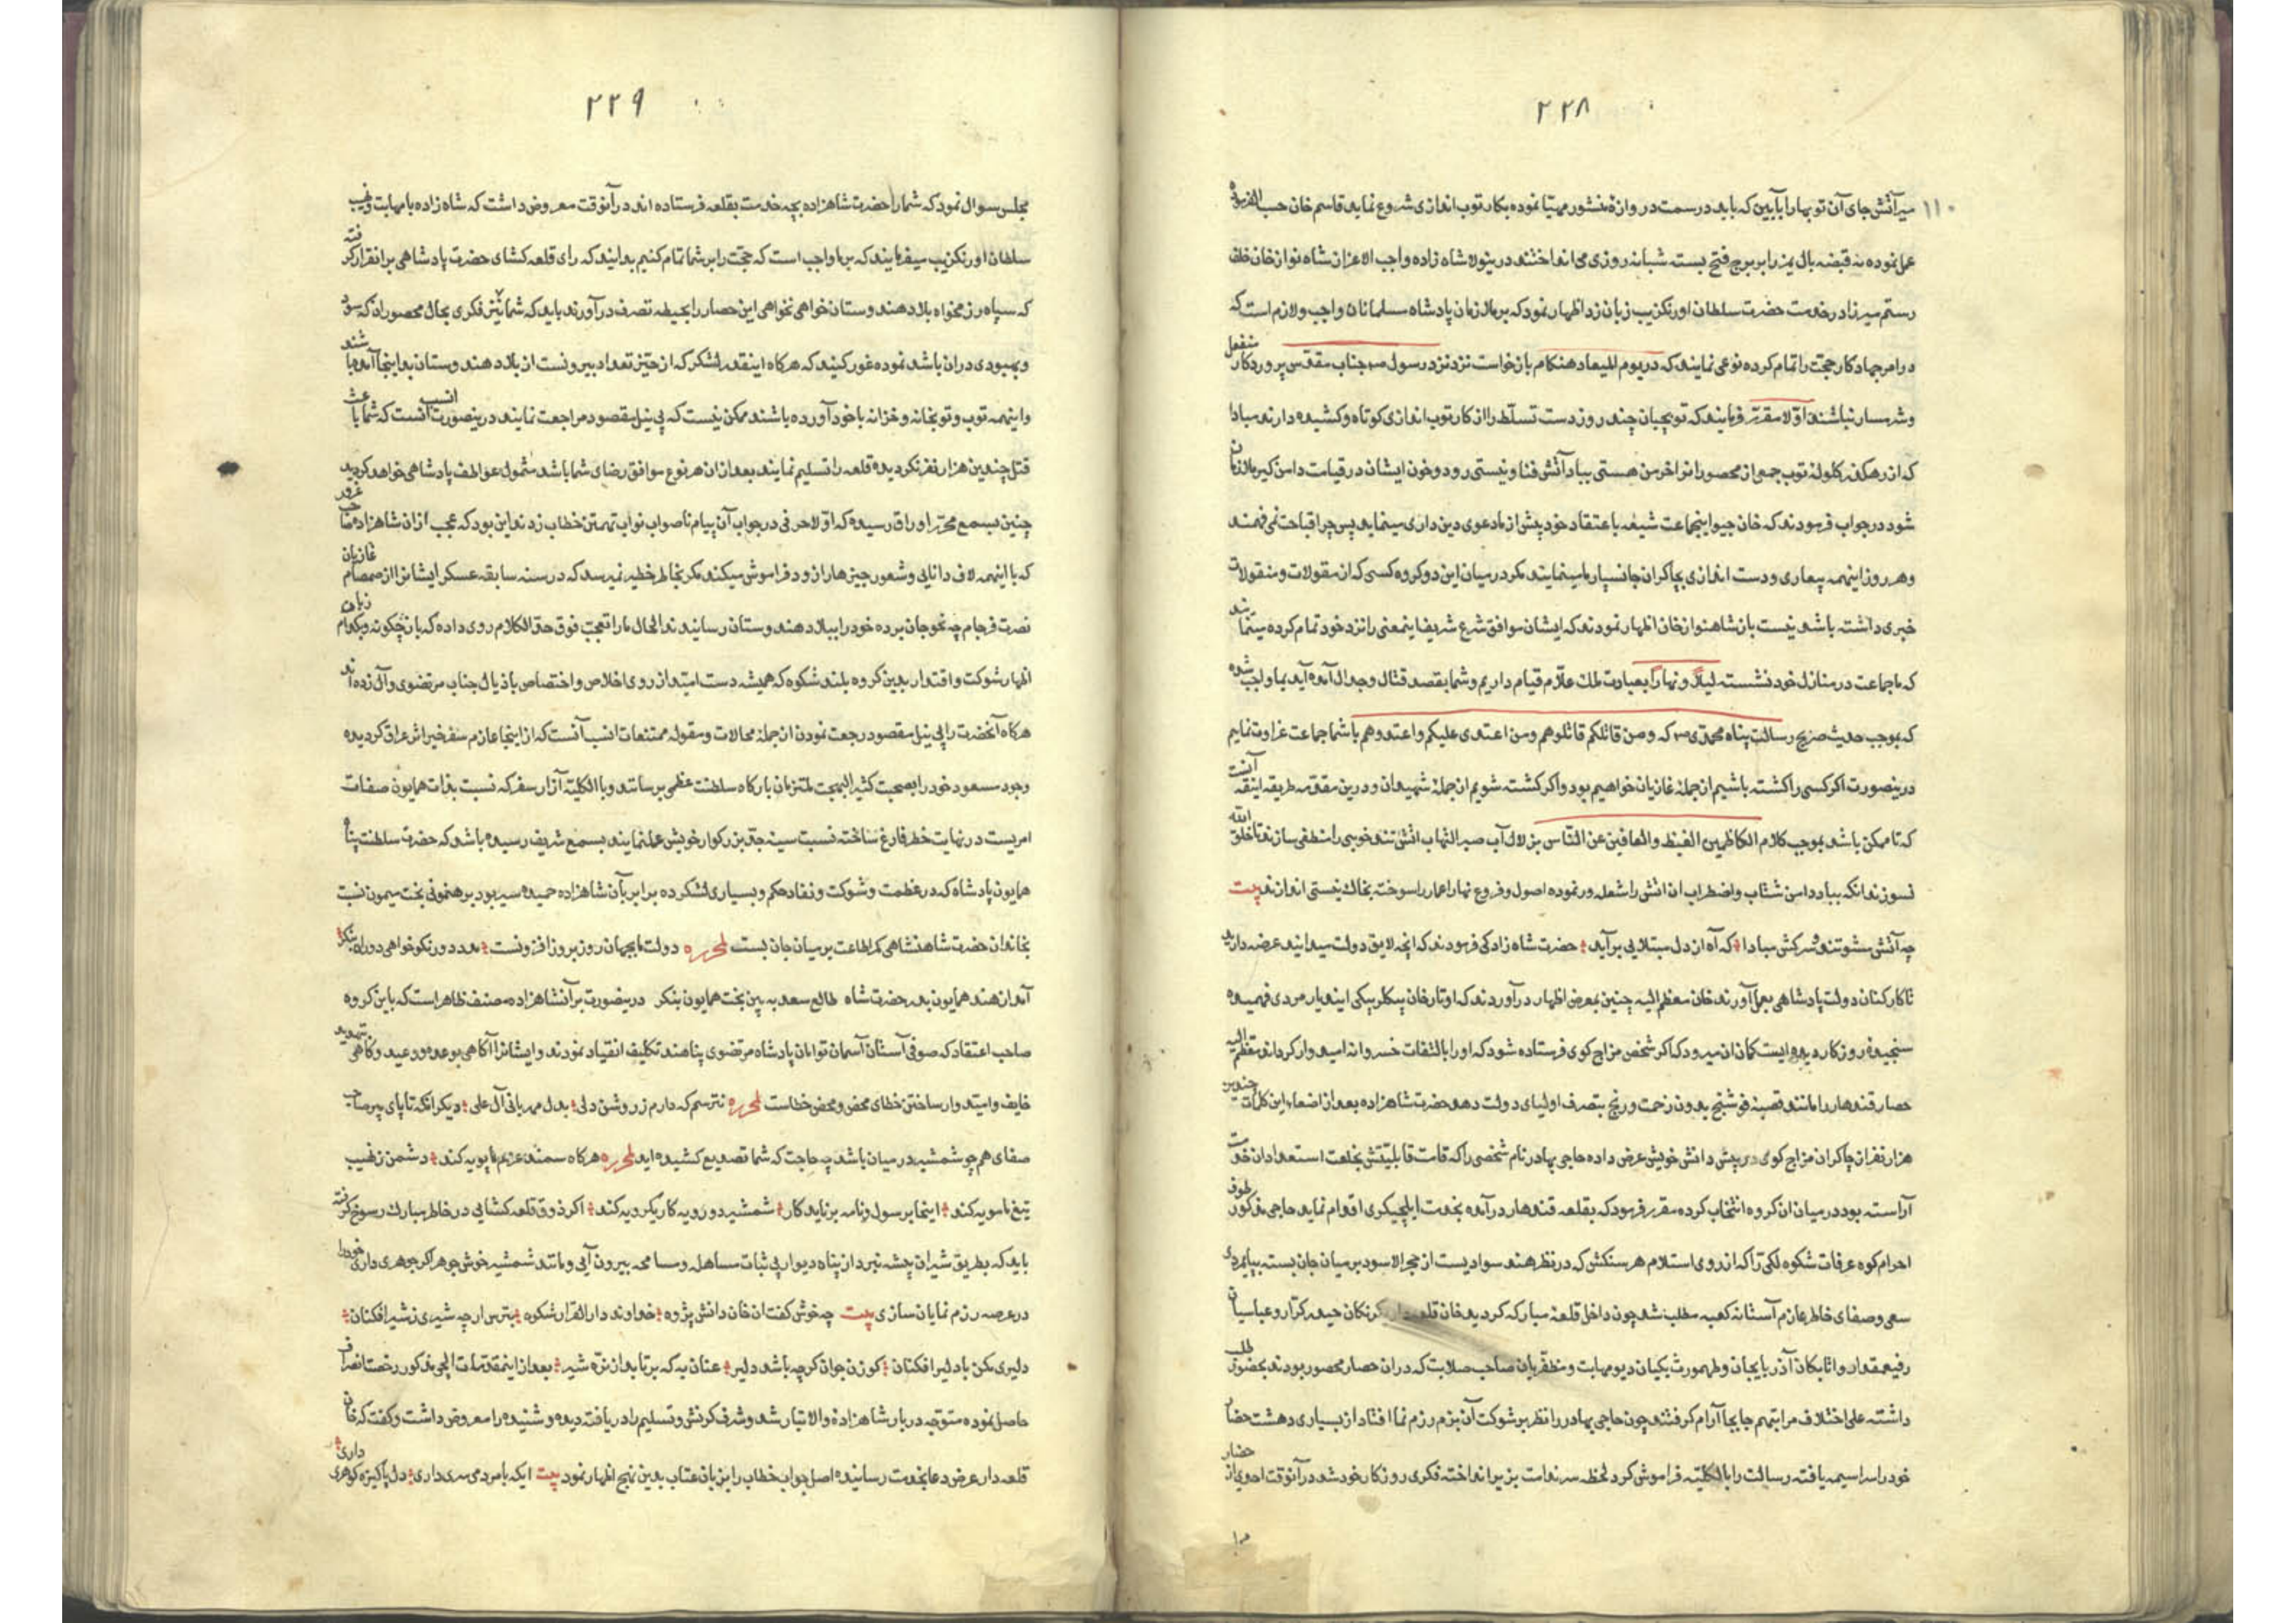 ۲۲۸
۱۱۰
میرآتش جای آن توبها را بآیین که باید در سمت دروازهٔ منشور مهیّا نموده بکار توب اندازی شروع نماید قاسم خان حسب
عمل نموده نه قبضه بال یمز را بر برج فتح بسته شبانه روزی می انداختند درینولا شاه زاده واجب الاعزاز شاه نواز خان خلف
رستم میرزا در خدمت حضرت سلطان اورنکزیب زبان زد اظهار نمود که بر ملازمان پادشاه مسلمانان واجب و لازم است که
در امر جهاد کار حجّت را تمام کرده نوعی نمایند که در یوم المیعاد هنکام بازخواست نزد رسول و جناب مقدّس پروردکار منفعل
و شرمسار نباشند اوّلا مقرّر فرمایند که توپچیان چند روز دست تسلّط را از کار توب اندازی کوتاه و کشیده دارند مبادا
که از رهکذر کلولهٔ توب جمعی از محصورانرا خرمن هستی بباد آتش فنا و نیستی رود و خون ایشان در قیامت دامن کیر ملازمان
شود در جواب فرمودند که خان جیو اینجماعت شیعه باعتقاد خود پیش از ما دعوی دین داری مینماید پس چرا قباحت نمی فهمند
و هر روز اینهمه بیعاری و دست اندازی بچاکران جانسپار ما مینمایند مکر در میان این دو کروه کسی که از مقولات و منقولات
خبری داشته باشد نیست باز شاهنواز خان اظهار نمودند که ایشان موافق شرع شریف اینمعنی را نزد خود تمام کرده مینمایند
که ما جماعت در منازل خود نشسته لیلاً و نهاراً بعبادت ملک علّام قیام داریم و شما بقصد قتال و جدال آمده آید بما واجب شده
که بموجب حدیث صریح رسالت پناه محمّدی که و من قاتلکم قاتلوهم و من اعتدی علیکم واعتدوهم با شما جماعت غزاوت نمایم
درینصورت اکر کسی را کشته باشیم از جملهٔ غازیان خواهیم بود و اکر کشته شویم از جملهٔ شهیدان و درین مقدّمه طریقه اینقه آنست
که تا ممکن باشد بموجب کلام الکاظمین الغیظ والعافین عن النّاس بزلال آب صبر التهاب آتش تند خویی را منطفی سازند تا خلق الله
نسوزند نه انکه بباد دامن شتاب و اضطراب ان اتش را شعله ور نموده اصول و فروع نهار اعمار را سوخته بخاک نیستی اندازند بیت
چه آتش مشو تند و سرکش مبادا که آه از دل مبتلایی برآید حضرت شاه زادکی فرمودند که انچه لایق دولت میدانید عرضه دارید
تا کارکنان دولت پادشاهی بعمل آورند خان معظم الیه چنین بمعرض اظهار درآوردند که اوتارخان بیکلربیکی ایندیار مردی فهمیده
سنجیدهٔ روزکار دیده ایست کمان ان میرود که اکر شخص مزاج کوی فرستاده شود که او را بالتفات خسروانه امیدوار کرداند معظم الیه
حصار قندهار را مانند قصبهٔ فوشنج بدون زحمت و رنج بتصرف اولیای دولت دهد حضرت شاهزاده بعد از اصغاء این کلمات چندین
هزار نفر از چاکران مزاج کوی در پیش دانش خویش عرض داده حاجی بهادر نام شخصی را که قامت قابلیّتش بخلعت استعداد ان خدمت
آراسته بود در میان ان کروه انتخاب کرده مقرر فرمود که بقلعه قندهار درآمده بخدمت ایلچیکری اقدام نماید حاجی مذکور طوف
احرام کوه عرفات شکوه لکی را که از روی استلام هر سنکش که در نظر هند سوادیست از حجر الاسود بر میان جان بسته بپایمردی
سعی و صفای خاطر عازم آستانه کعبه مطلب شد چون داخل قلعهٔ مبارکه کردید خان قلعه دار کرنکان حیدر کرّار و عباسیان
رفیع مقدار و اتابکان آذربایجان و طهمورث بکیان دیو مهابت و مظفّریان صاحب صلابت که دران حصار محصور بودند بحضور طلب
داشته علی اختلاف مراتبهم جابجا آرام کرفتند چون حاجی بهادر را نظر بر شوکت آن بزم رزم نما افتاد از بسیاری دهشت حضار
خود را سراسیمه یافته رسالت را بالکلیّه فراموش کرد لحظه سر ندامت بزیر انداخته فکری روزکار خود شد درآنوقت احدی از حضار
۲۲۹
مجلس سوال نمود که شما را حضرت شاهزاده بچه خدمت بقلعه فرستاده اند درآنوقت معروض داشت که شاه زاده با مهابت و نهیب
سلطان اورنکزیب میفرمایند که بر ما واجب است که حجّت را بر شما تمام کنیم بدانید که رای قلعه کشای حضرت پادشاهی بر انقرار کرفته
که سپاه رزمخواه بلاد هندوستان خواهی نخواهی این حصار را بحیطه تصرف درآورند باید که شما نیز فکری بحال محصوران که سود
و بهبودی دران باشد نموده غور کنید که هرکاه اینقدر لشکر که از حیّز تعداد بیرونست از بلاد هندوستان بدینجا آمده باشند
و اینهمه توب و توبخانه و خزانه با خود آورده باشند ممکن نیست که بی نیل مقصود مراجعت نمایند درینصورت انسب آنست که شما باعث
قتل چندین هزار نفر نکردیده قلعه را تسلیم نمایند بعد ازان هر نوع موافق رضای شما باشد مشمول عواطف پادشاهی خواهد کردید
چنین بسمع محرّر اوراق رسیده که اوّلا حرفی در جواب آن پیام ناصواب نواب تهمتن خطاب زدند این بود که عجب ازان شاهزاده صاحب غرور
که با اینهمه لاف دانایی و شعور چیزها را زود فراموش میکند مکر بخاطر خطیر نمیرسد که در سنه سابقه عسکر ایشانرا از صمصام غازیان
نصرت فرجام چه نحو جان برده خود را ببلاد هندوستان رسانیدند الحال ما را تعجب فوق حدّ الکلام روی داده که باز چکونه و بکدام زبان
اظهار شوکت و اقتدار بدین کروه بلند شکوه که همیشه دست امید از روی اخلاص و اختصاص باذیال جناب مرتضوی و آل زده اند
هرکاه آنحضرت را بی نیل مقصود رجعت نمودن از جملهٔ محالات و مقوله ممتنعات انسب آنست که از اینجا عازم سفر خیر اثر عراق کردیده
وجود مسعود خود را بصحبت کثیر البهجت ملتزمان بارکاه سلطنت عظمی برسانند و بالکلیّه آزار سفر که نسبت بذات همایون صفات
امریست در نهایت خطر فارغ ساخته نسبت سینه جدّ بزرکوار خویش عمل نمایند بسمع شریف رسیده باشد که حضرت سلطنت پناه
همایون پادشاه که در عظمت و شوکت و نفاد حکم و بسیاری لشکر ده برابر بآن شاهزاده حمیده سیر بود برهنمونی بخت میمون نسبت
بخاندان حضرت شاهنشاهی کمر اطاعت بر میان جان بست لمحرره دولت ما بجهان روز بروز افزونست مدد دور نکوخواهی دوران بنکر
آمد از هند همایون بدر حضرت شاه طالع سعد ببین بخت همایون بنکر درینصورت برآنشاهزاده منصف ظاهر است که باین کروه
صاحب اعتقاد که صوفی آستان آسمان توامان پادشاه مرتضوی پناهند تکلیف انقیاد نمودند و ایشانرا آکاهی بوعده و وعید و کاهی بتهدید
خایف و امیدوار ساختن خطای محض و محض خطاست لمحرره نترسم که دارم ز روشن دلی بدل مهربانی آل علی دیکر انکه تا پای پیر صاحب
صفای همچو شمشیر در میان باشد چه حاجت که شما تصدیع کشیده اید لمحرره هرکاه سمند عزم ما پویه کند دشمن ز نهیب
تیغ ما مویه کند اینجا برسول و نامه برناید کار شمشیر دو رویه کار یکرویه کند اکر ذوق قلعه کشایی در خاطر مبارک رسوخ کرفته
باید که بطریق شیران بیشه نبرد از پناه دیوار بی ثبات مساهله و مسامحه بیرون آیی و مانند شمشیر خوش جوهر اکر جوهری داری خود را
در عرصه رزم نمایان سازی بیت چه خوش کفت ان خان دانش پژوه خداوند دار القرار شکوه بترس ار چه شیری ز شیر افکنان
دلیری مکن با دلیر افکنان کوزن جوان کرچه باشد دلیر عنان به که برتابد از نرّه شیر بعد از اینمقدّمات ایلچی مذکور رخصت انصراف
حاصل نموده متوجّه دربار شاهزادهٔ والاتبار شد و شرف کرنش و تسلیم را دریافته دیده و شنیده را معروض داشت و کفت که خان
قلعه دار عرض دعا بخدمت رسانیده اصل جواب خطاب را بزبان عتاب بدین نهج اظهار نمود بیت ایکه با مردمی سری داری دل پاکیزه کوهری داری